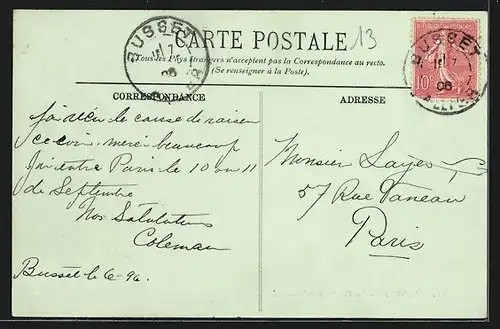 CARTE POSTALE
13
Tous les Pays étrangers n'acceptent pas la Correspondance au recto.
(Se renseigner à la Poste.)
BUSSET
ALLIER
06
BUSSET
ALLIER
06
10c
CORRESPONDANCE
la cause de
merci beaucoup
Paris le 10 ou 11
de Septembre
Nos Salutations
Coleman
Busset le 6-9
ADRESSE
Monsier Layes
57 Rue Vaneau
Paris